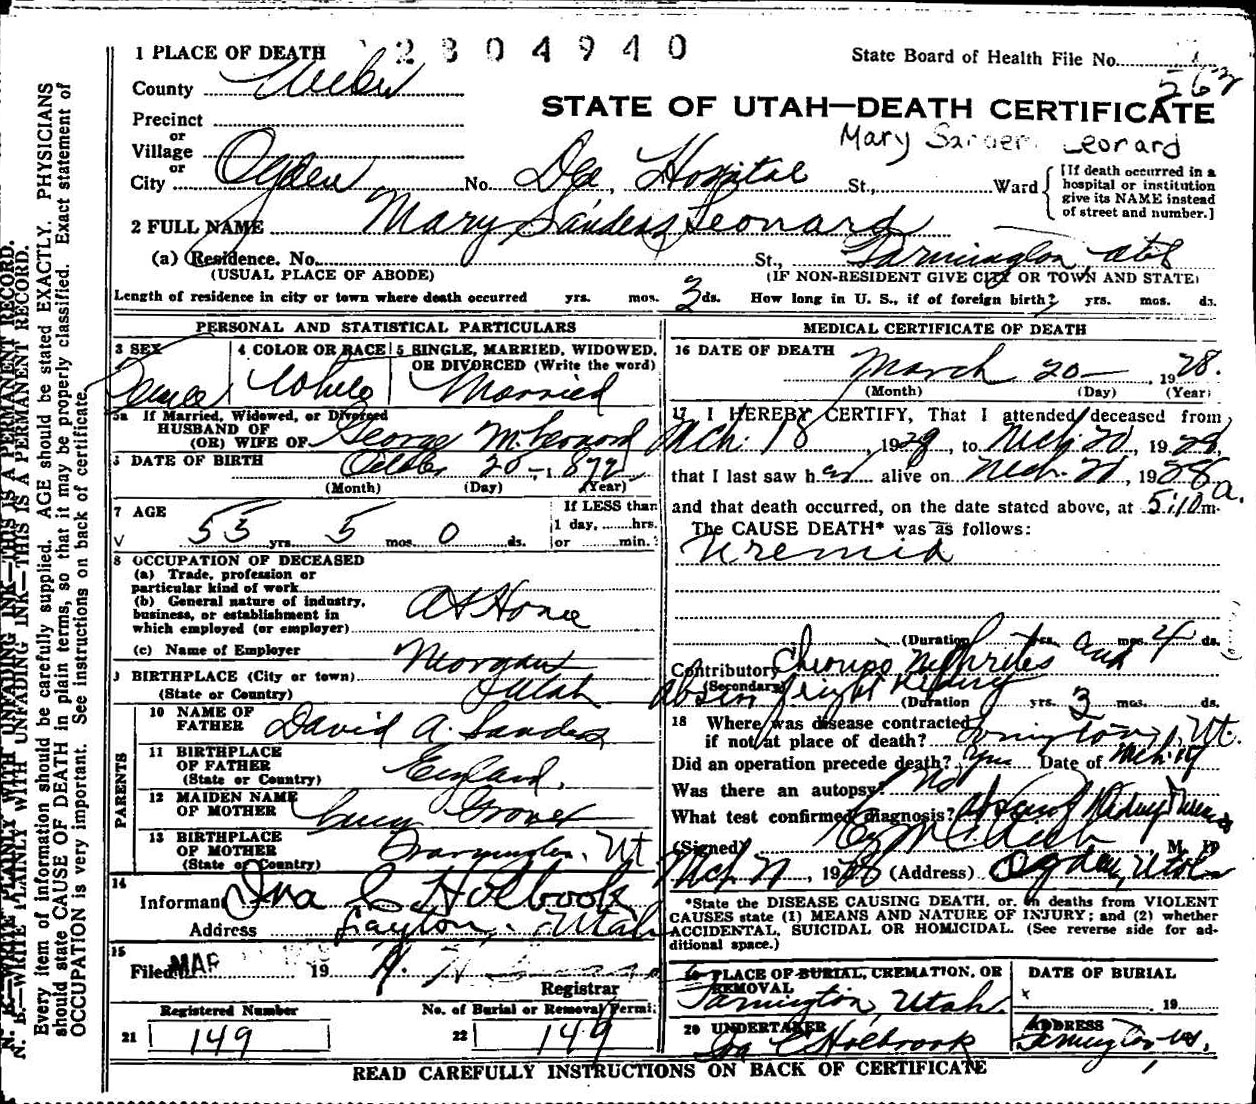 1 PLACE OF DEATH 2804940 State Board of Health File No.
County Weber 562
STATE OF UTAH—DEATH CERTIFICATE
Precinct
or
Village
or
Mary Leonard
City Ogden No. Dee, Hospital St., Ward [If death occurred in a hospital or institution give its NAME instead of street and number.]
2 FULL NAME Mary Sanders Leonard
(a) Residence. No. St., Farmington Utah
(USUAL PLACE OF ABODE) (IF NON-RESIDENT GIVE CITY OR TOWN AND STATE)
Length of residence in city or town where death occurred yrs. mos. 3 ds. How long in U. S., if of foreign birth? yrs. mos. ds.
PERSONAL AND STATISTICAL PARTICULARS
3 SEX Female
4 COLOR OR RACE White
5 SINGLE, MARRIED, WIDOWED, OR DIVORCED (Write the word) Married
5a If Married, Widowed, or Divorced
HUSBAND OF
(OR) WIFE OF George M. Leonard
6 DATE OF BIRTH October 20-, 1872
(Month) (Day) (Year)
7 AGE If LESS than
55 yrs. 5 mos. 0 ds. 1 day, hrs.
or min.
8 OCCUPATION OF DECEASED
(a) Trade, profession or
particular kind of work
(b) General nature of industry,
business, or establishment in
which employed (or employer) At Home
(c) Name of Employer
9 BIRTHPLACE (City or town) Morgan
(State or Country) Utah
PARENTS
10 NAME OF FATHER David A. Sanders
11 BIRTHPLACE OF FATHER England.
(State or Country)
12 MAIDEN NAME OF MOTHER Lucy Grover
13 BIRTHPLACE OF MOTHER Farmington, Ut
(State or Country)
14
Informant Ina C. Holbrook
Address Layton, Utah
15
Filed MAR 19
Registrar
Registered Number No. of Burial or Removal Permit
21 149 22 149
MEDICAL CERTIFICATE OF DEATH
16 DATE OF DEATH
March 20- , 1928.
(Month) (Day) (Year)
17 I HEREBY CERTIFY, That I attended deceased from
Mch. 18, 1928, to Mch. 20, 1928,
that I last saw her alive on Mch. 20, 1928
and that death occurred, on the date stated above, at 5:10 a.m.
The CAUSE DEATH* was as follows:
Uremia
(Duration yrs. mos. 4 ds.
Contributory Chronic Nephrites and
(Secondary) Absent right Kidney
(Duration yrs. 3 mos. ds.
18 Where was disease contracted
if not at place of death? Farmington, Ut.
Did an operation precede death? Yes Date of Mch. 17
Was there an autopsy? No
What test confirmed diagnosis? Absent Kidney
(Signed) M. D
1928 (Address) Ogden, Utah
*State the DISEASE CAUSING DEATH, or, in deaths from VIOLENT
CAUSES state (1) MEANS AND NATURE OF INJURY; and (2) whether
ACCIDENTAL, SUICIDAL OR HOMICIDAL. (See reverse side for ad-
ditional space.)
19 PLACE OF BURIAL, CREMATION, OR REMOVAL DATE OF BURIAL
Farmington, Utah. 19
20 UNDERTAKER ADDRESS
Ina C Holbrook Farmington
READ CAREFULLY INSTRUCTIONS ON BACK OF CERTIFICATE
N. B.—WRITE PLAINLY WITH UNFADING INK—THIS IS A PERMANENT RECORD.
Every item of information should be carefully supplied. AGE should be stated EXACTLY. PHYSICIANS
should state CAUSE OF DEATH in plain terms, so that it may be properly classified. Exact statement of
OCCUPATION is very important. See instructions on back of certificate.